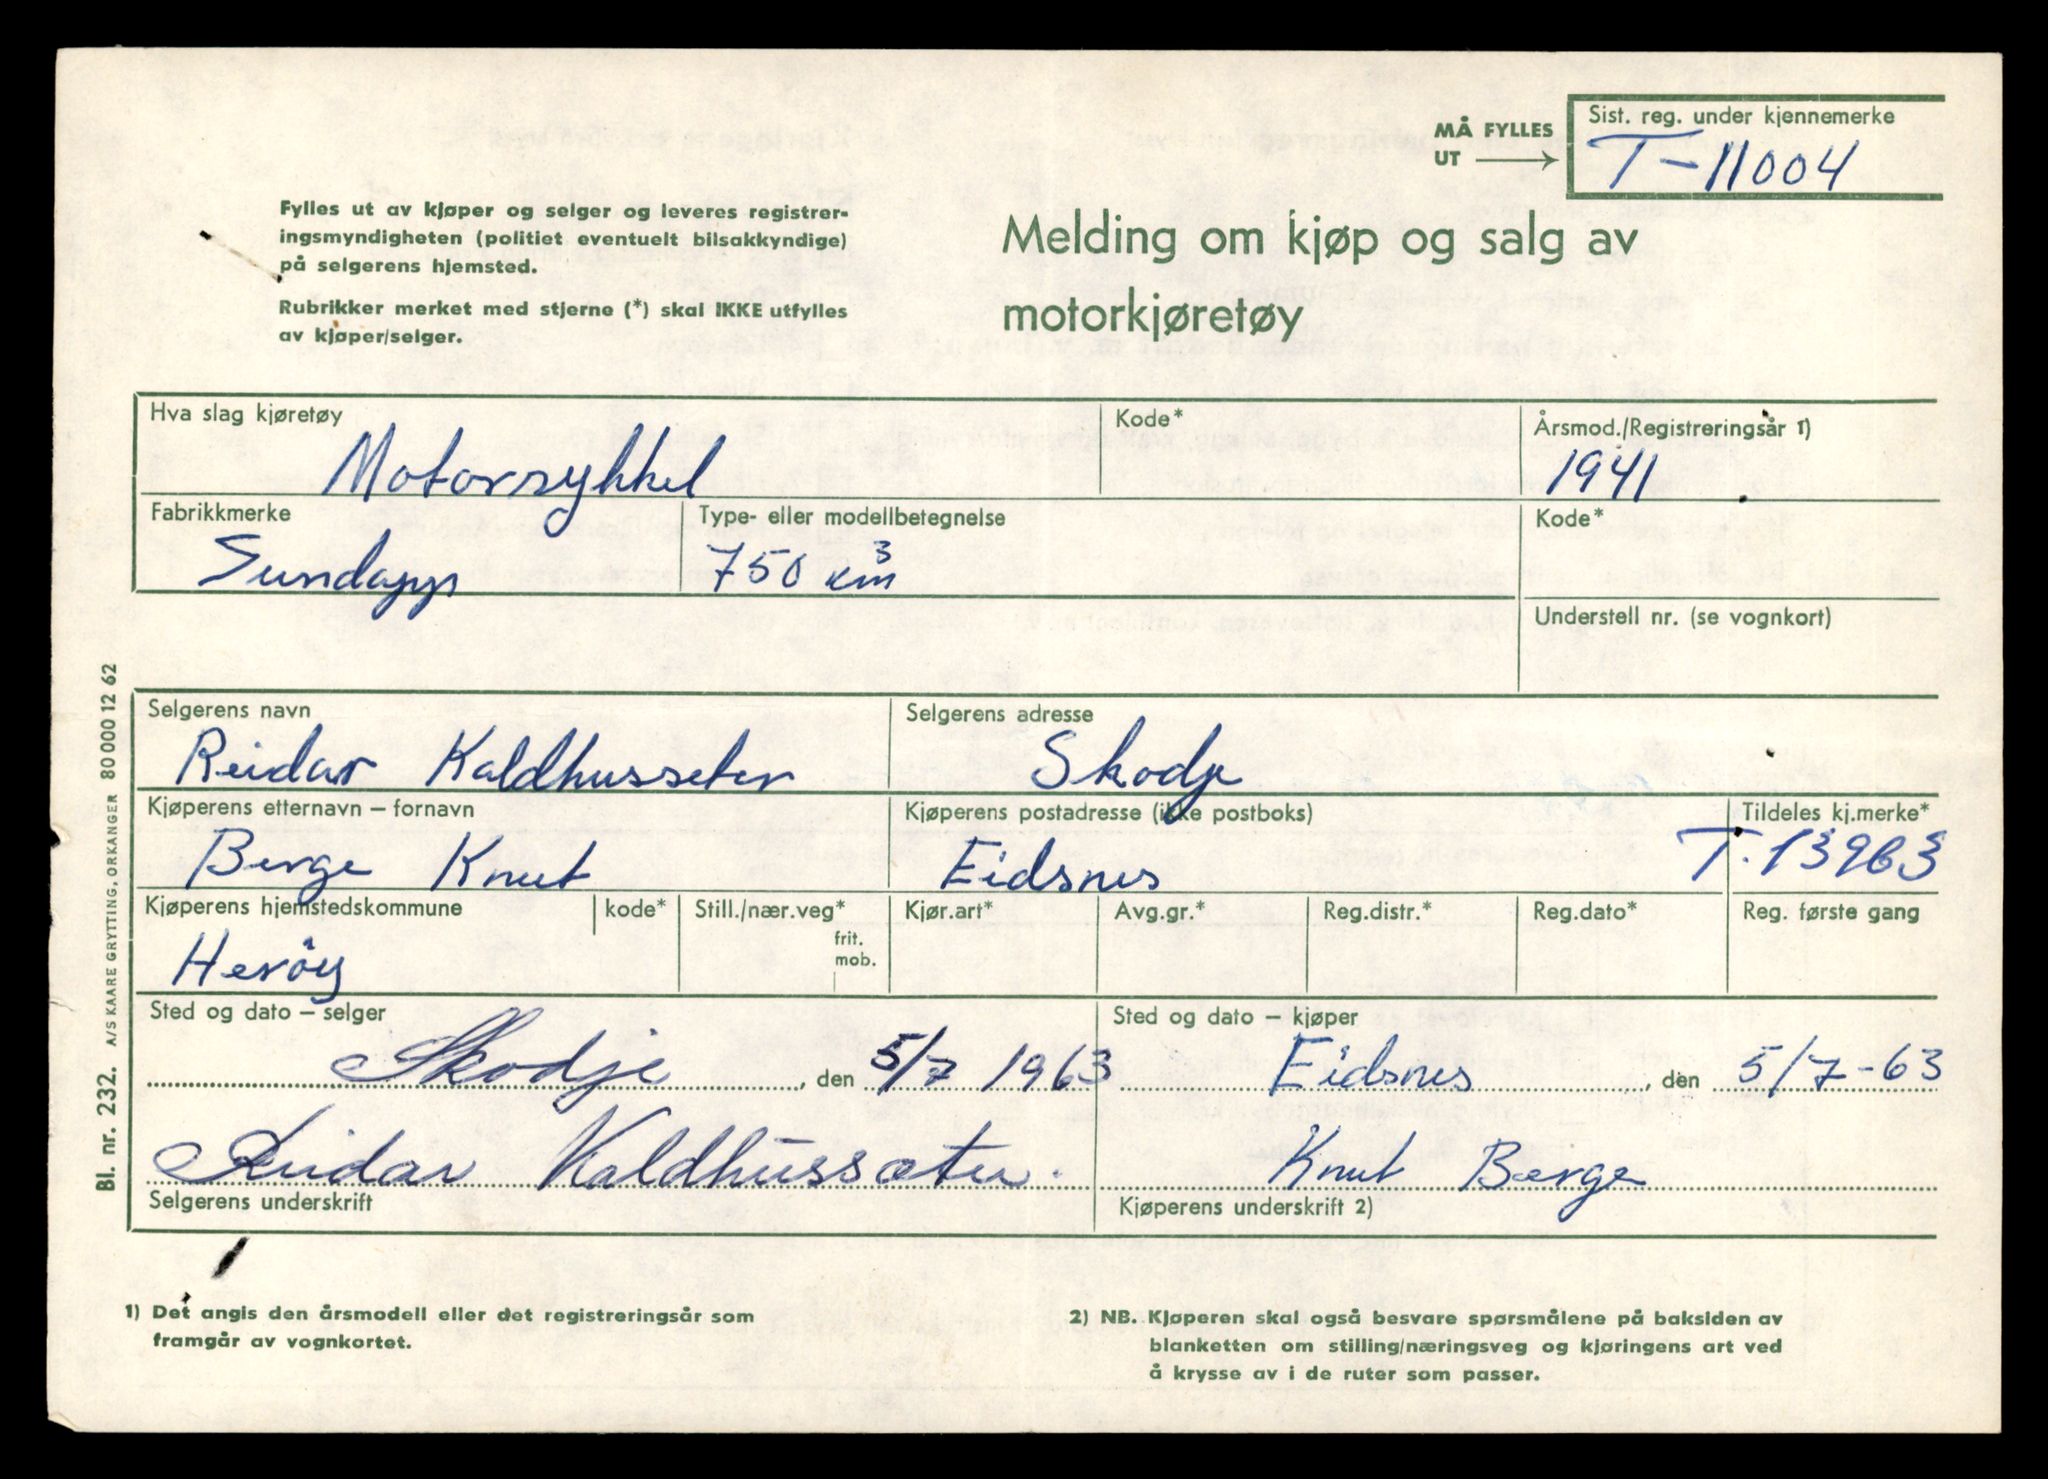 MÅ FYLLES
UT
Sist. reg. under kjennemerke
T-11004
Fylles ut av kjøper og selger og leveres registrer-
ingsmyndigheten (politiet eventuelt bilsakkyndige)
på selgerens hjemsted.
Rubrikker merket med stjerne (*) skal IKKE utfylles
av kjøper/selger.
Melding om kjøp og salg av
motorkjøretøy
Hva slag kjøretøy
Motorsykkel
Kode*
Årsmod./Registreringsår 1)
1941
Fabrikkmerke
Sundapps
Type- eller modellbetegnelse
750 km³
Kode*
Understell nr. (se vognkort)
Selgerens navn
Reidar Kaldhusseter
Selgerens adresse
Skodje
Kjøperens etternavn – fornavn
Berge Knut
Kjøperens postadresse (ikke postboks)
Eidsnes
Tildeles kj.merke*
T.13963
Kjøperens hjemstedskommune
Heröy
kode*
Still./nær.veg*
frit.
mob.
Kjør.art*
Avg.gr.*
Reg.distr.*
Reg.dato*
Reg. første gang
Sted og dato – selger
Skodje, den 5/7 1963
Reidar Kaldhussæter.
Selgerens underskrift
Sted og dato – kjøper
Eidsnes, den 5/7-63
Knut Berge
Kjøperens underskrift 2)
Bl. nr. 232. A/S KAARE GRYTTING, ORKANGER 80 000 12 62
1) Det angis den årsmodell eller det registreringsår som
framgår av vognkortet.
2) NB. Kjøperen skal også besvare spørsmålene på baksiden av
blanketten om stilling/næringsveg og kjøringens art ved
å krysse av i de ruter som passer.